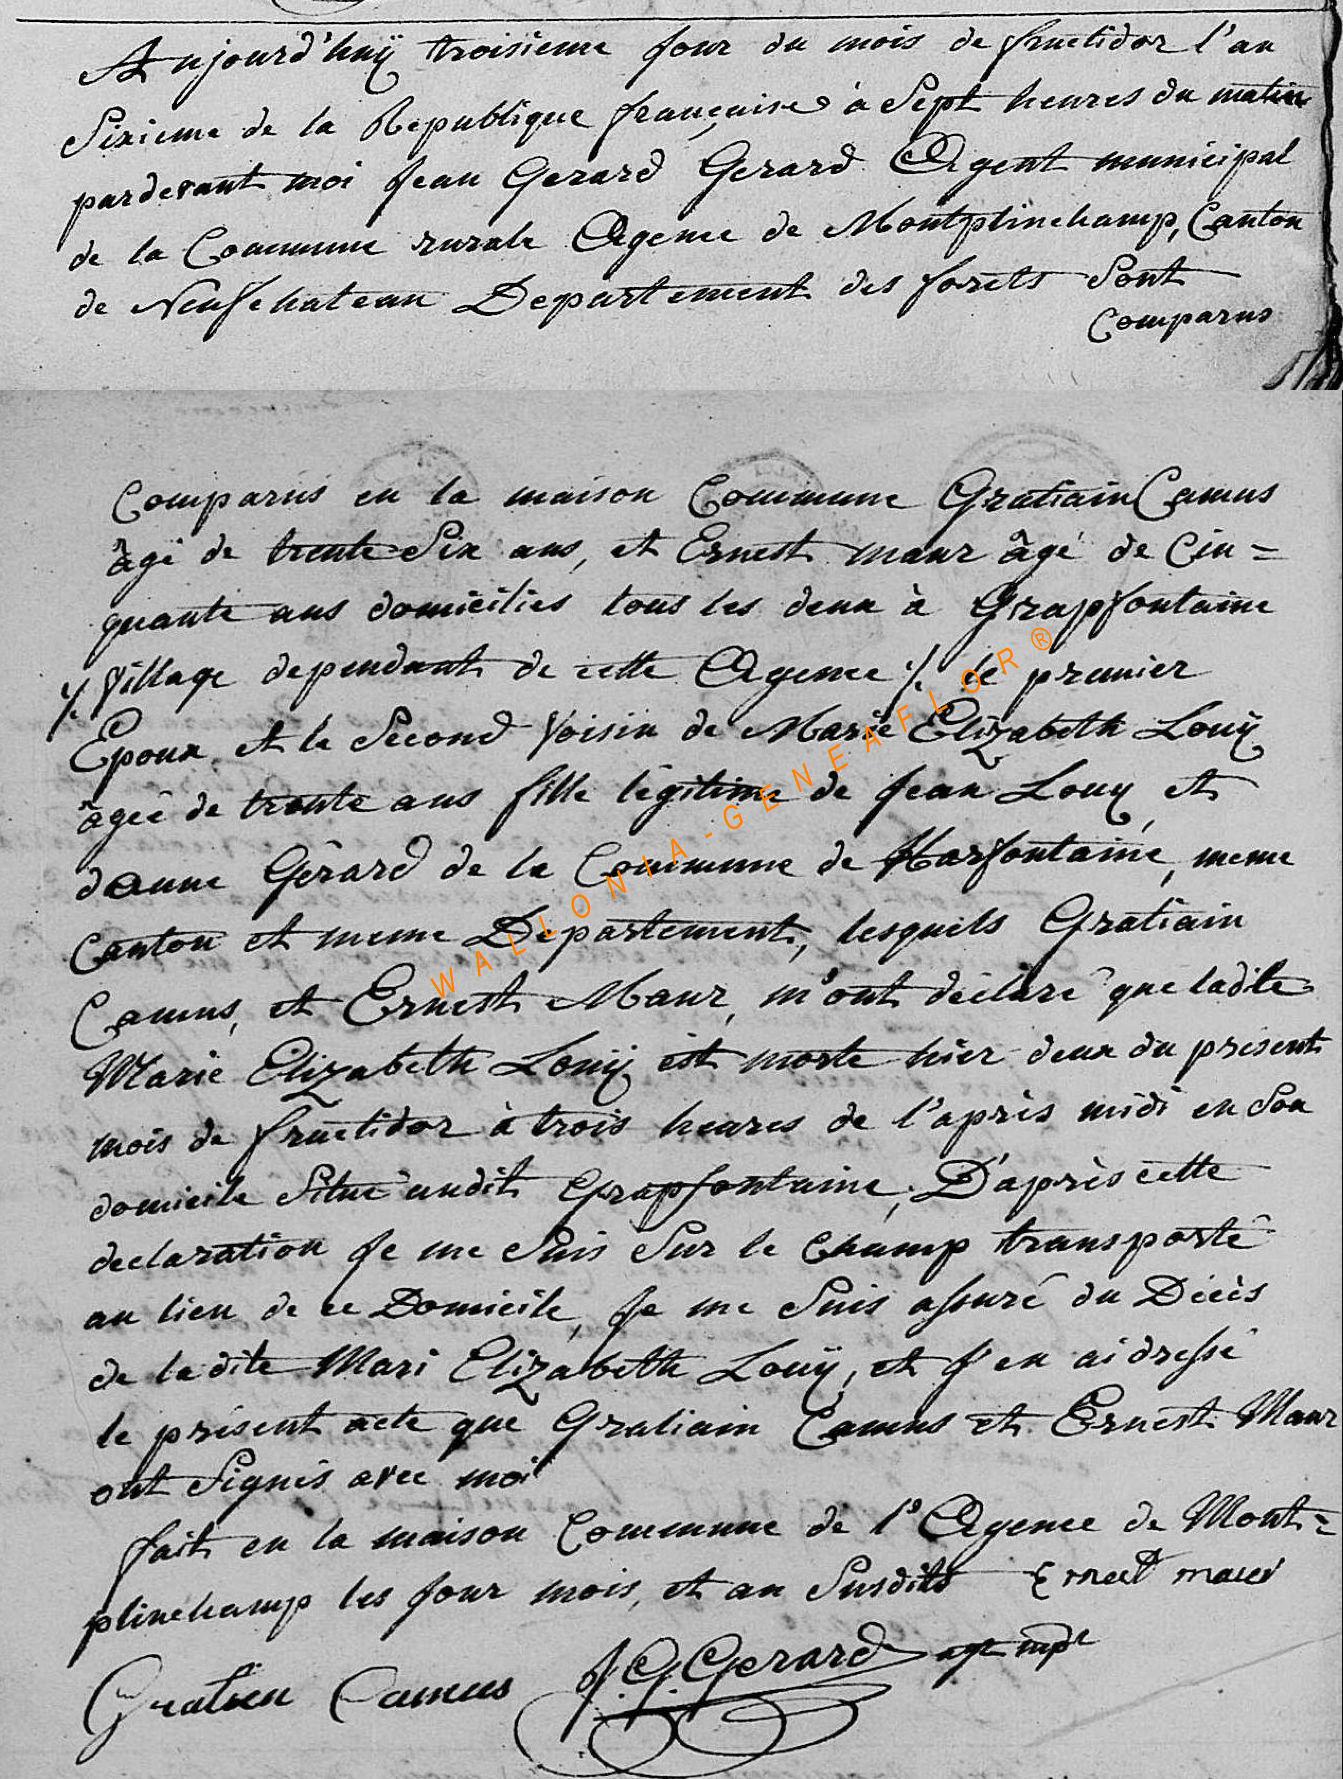 Aujourd'huÿ troisieme jour du mois de fructidor l'an
Sixieme de la Republique françaises à Sept heures du matin
pardevant moi Jean Gerard Gerard Agent municipal
de la Commune rurale Agence de Montplinchamp, Canton
de Neufchateau Departement des forets Sont
Comparus
Comparus en la maison Commune Gratiain Camus
âgé de trente Six ans, et Ernest maur âgé de Cin=
quante ans domiciliés tous les deux à Grapfontaine
⁒ Village dependant de cette Agence ⁒ le premier
Epoux et le Second Voisin de Marie Elizabeth Louÿ
âgée de trente ans fille légitime de Jean Louy et
danne Gérard de la Commune de Harfontaine, meme
Canton et meme Département, lesquels Gratiain
Camus, et Ernest Maur, m'ont déclaré que ladite
Marie Elizabeth Louÿ est morte hier deux du présent
mois de fructidor à trois heures de l'après midi en Son
domicile Situé audit Grapfontaine, D'après cette
declaration Je me Suis Sur le Champ transporté
au lieu de ce Domicile, Je me Suis assuré du Décès
de ladite Mari Elizabeth Louÿ, et J'en ai dressé
le présent acte que Gratiain Camus et Ernest Maur
ont Signés avec moi
fait en la maison Commune de l'Agence de Mont=
plinchamp les Jour mois, et an Susdits Ernest maur
Gratien Camus J. G. Gerard agt mpl
WALLONIA-GENEAFLOR®